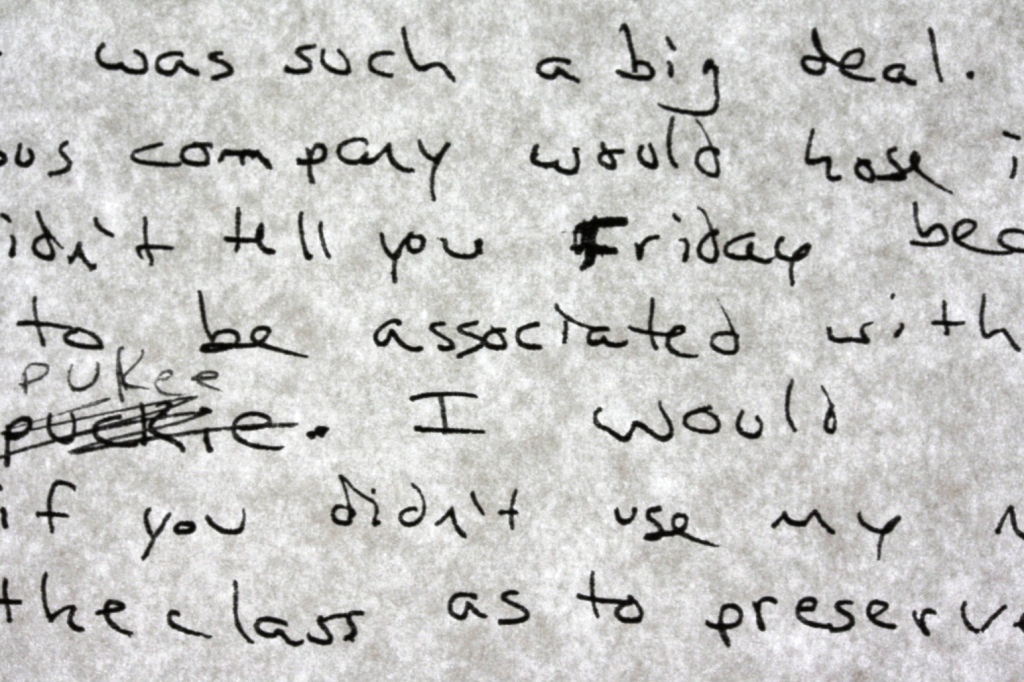 was such a big deal.
ous company would hose i
idn't tell you Friday bec
to be associated with
pukee
puckie. I would
if you didn't use my n
the class as to preserve